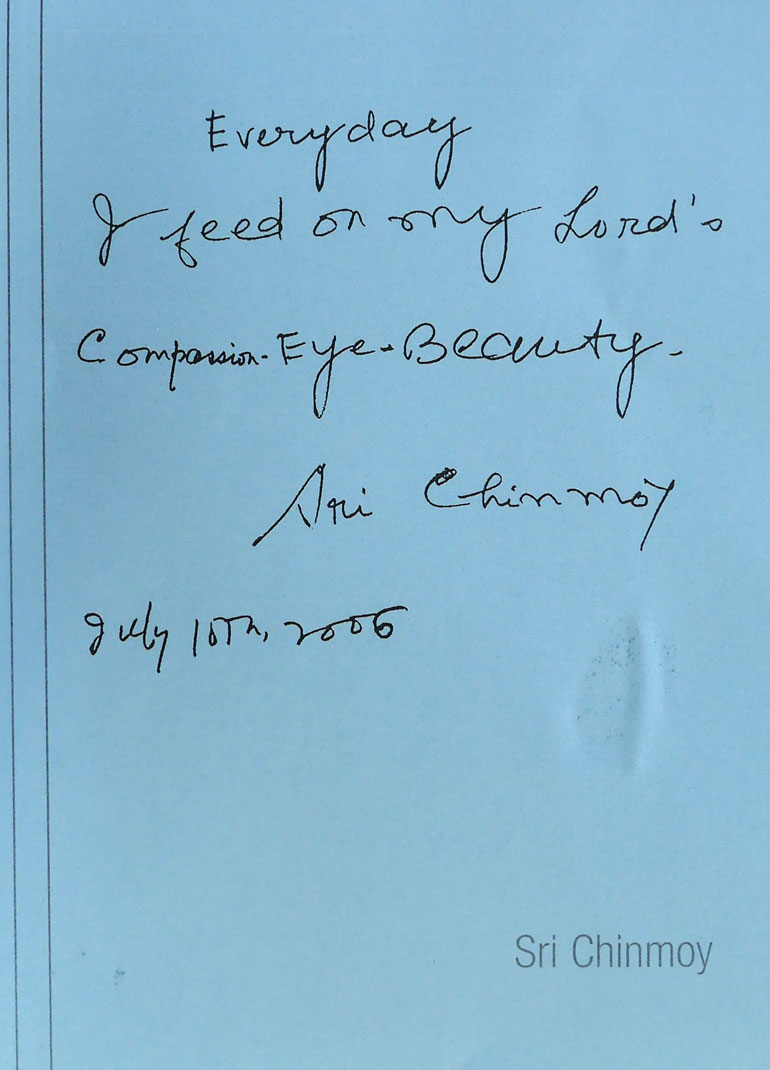 Everyday
I feed on my Lord's
Compassion-Eye-Beauty.
Sri Chinmoy
July 10th, 2006
Sri Chinmoy